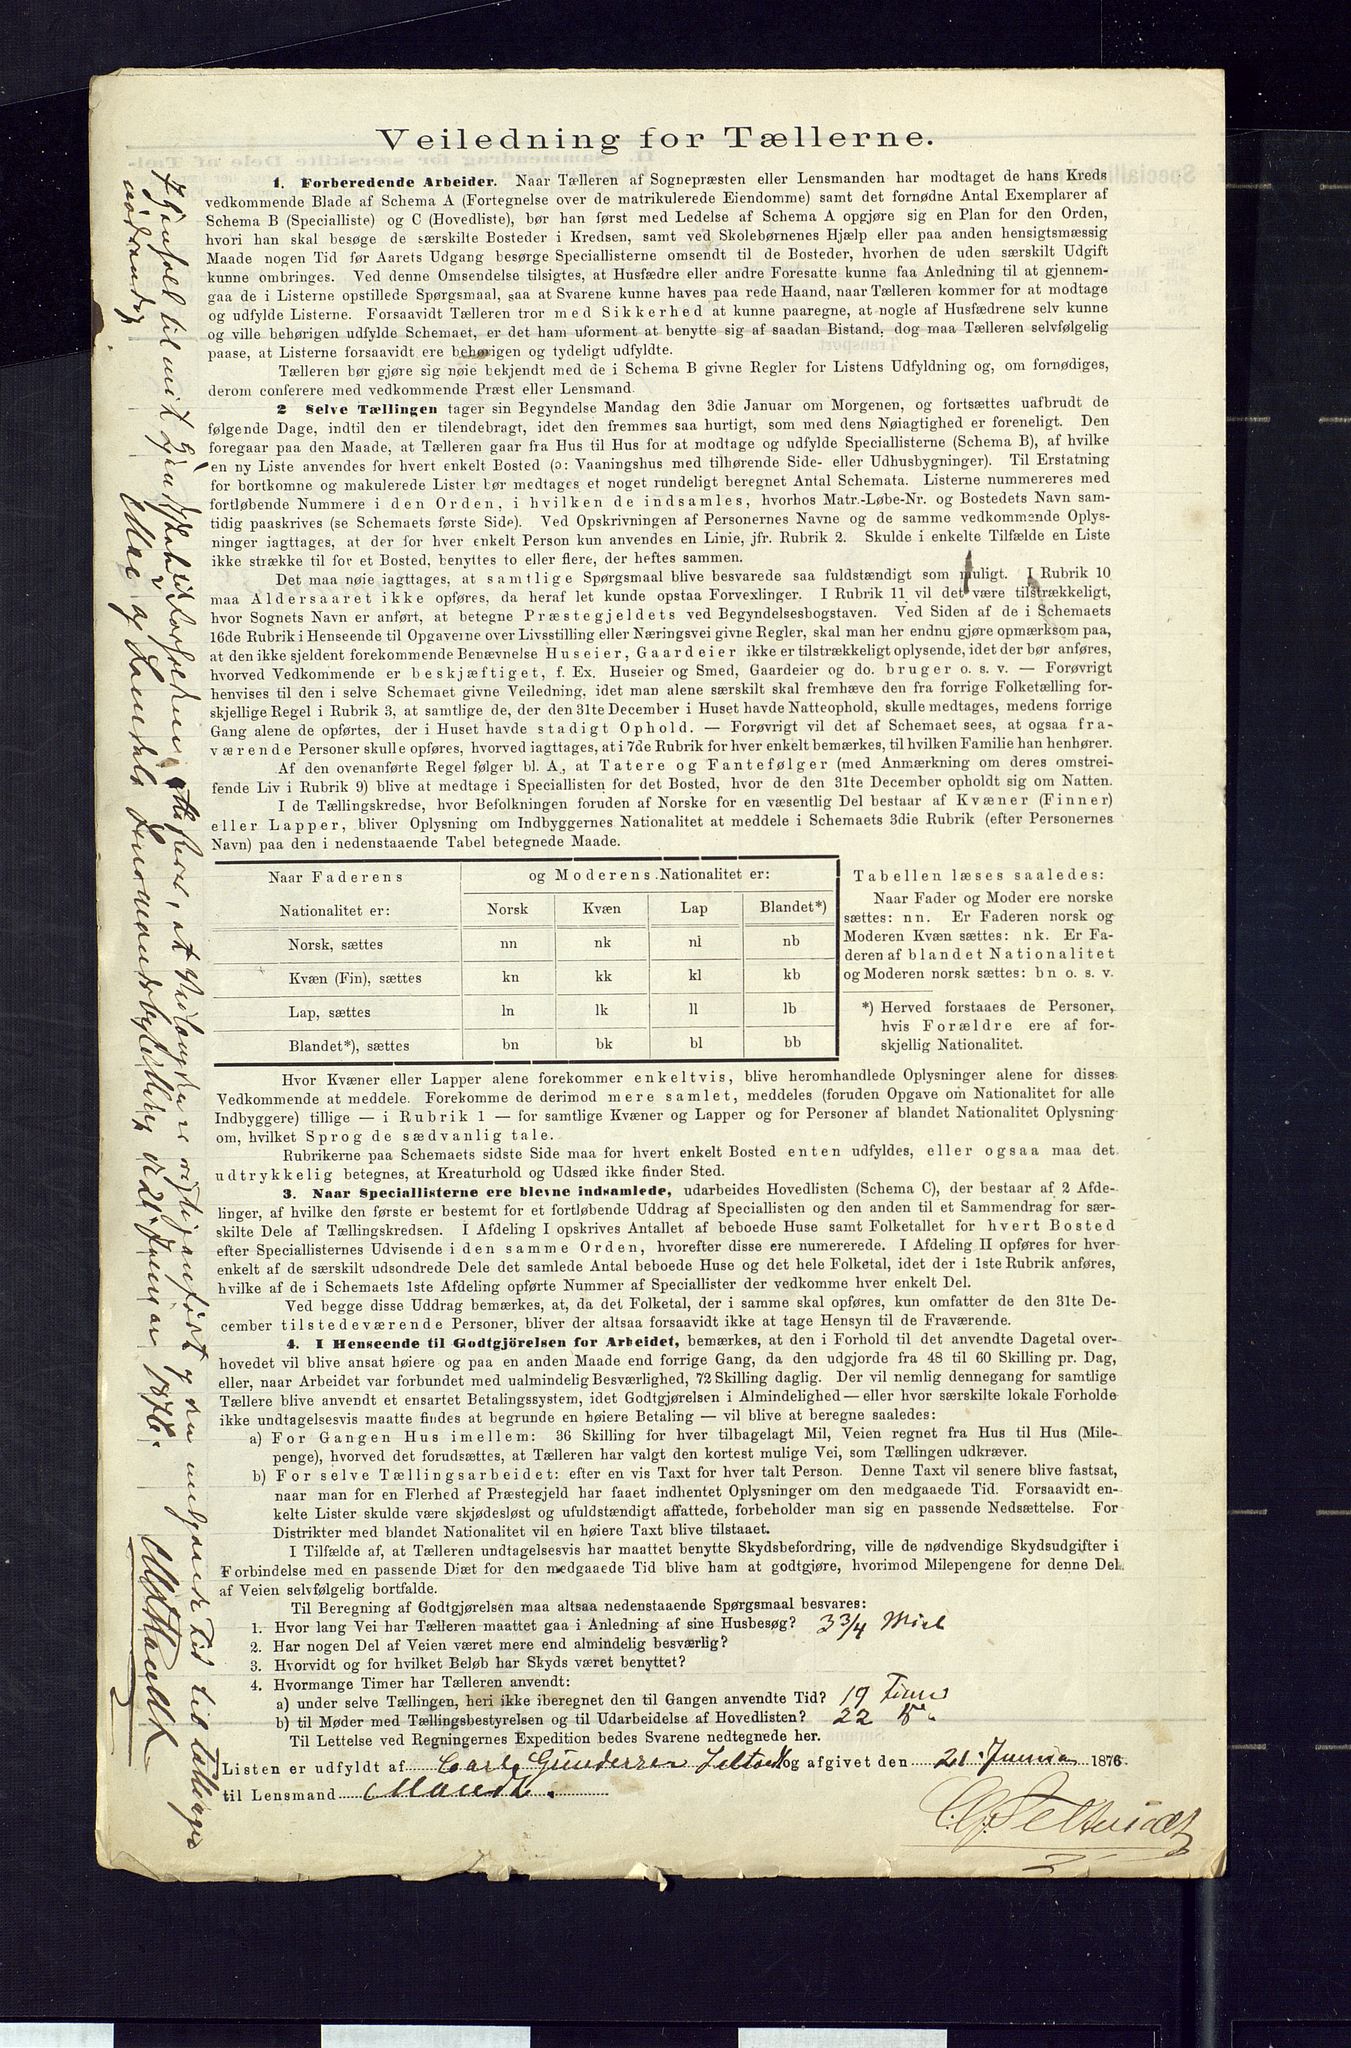 Veiledning for Tællerne.
1. Forberedende Arbeider. Naar Tælleren af Sognepræsten eller Lensmanden har modtaget de hans Kreds
vedkommende Blade af Schema A (Fortegnelse over de matrikulerede Eiendomme) samt det fornødne Antal Exemplarer af
Schema B (Specialliste) og C (Hovedliste), bør han først med Ledelse af Schema A opgjøre sig en Plan for den Orden,
hvori han skal besøge de særskilte Bosteder i Kredsen, samt ved Skolebørnenes Hjælp eller paa anden hensigtsmæssig
Maade nogen Tid før Aarets Udgang besørge Speciallisterne omsendt til de Bosteder, hvorhen de uden særskilt Udgift
kunne ombringes. Ved denne Omsendelse tilsigtes, at Husfædre eller andre Foresatte kunne faa Anledning til at gjennem-
gaa de i Listerne opstillede Spørgsmaal, saa at Svarene kunne haves paa rede Haand, naar Tælleren kommer for at modtage
og udfylde Listerne. Forsaavidt Tælleren tror med Sikkerhed at kunne paaregne, at nogle af Husfædrene selv kunne
og ville behørigen udfylde Schemaet, er det ham uforment at benytte sig af saadan Bistand, dog maa Tælleren selvfølgelig
paase, at Listerne forsaavidt ere behørigen og tydeligt udfyldte.
Tælleren bør gjøre sig nøie bekjendt med de i Schema B givne Regler for Listens Udfyldning og, om fornødiges,
derom conferere med vedkommende Præst eller Lensmand.
2 Selve Tællingen tager sin Begyndelse Mandag den 3die Januar om Morgenen, og fortsættes uafbrudt de
følgende Dage, indtil den er tilendebragt, idet den fremmes saa hurtigt, som med dens Nøiagtighed er foreneligt. Den
foregaar paa den Maade, at Tælleren gaar fra Hus til Hus for at modtage og udfylde Speciallisterne (Schema B), af hvilke
en ny Liste anvendes for hvert enkelt Bosted (ɔ: Vaaningshus med tilhørende Side- eller Udhusbygninger). Til Erstatning
for bortkomne og makulerede Lister bør medtages et noget rundeligt beregnet Antal Schemata. Listerne nummereres med
fortløbende Nummere i den Orden, i hvilken de indsamles, hvorhos Matr.-Løbe-Nr. og Bostedets Navn sam-
tidig paaskrives (se Schemaets første Side). Ved Opskrivningen af Personernes Navne og de samme vedkommende Oplys-
ninger iagttages, at der for hver enkelt Person kun anvendes en Linie, jfr. Rubrik 2. Skulde i enkelte Tilfælde en Liste
ikke strække til for et Bosted, benyttes to eller flere, der heftes sammen.
Det maa nøie iagttages, at samtlige Spørgsmaal blive besvarede saa fuldstændigt som muligt. I Rubrik 10
maa Aldersaaret ikke opføres, da heraf let kunde opstaa Forvexlinger. I Rubrik 11 vil det være tilstrækkeligt,
hvor Sognets Navn er anført, at betegne Præstegjeldets ved Begyndelsesbogstaven. Ved Siden af de i Schemaets
16de Rubrik i Henseende til Opgaverne over Livsstilling eller Næringsvei givne Regler, skal man her endnu gjøre opmærksom paa,
at den ikke sjeldent forekommende Benævnelse Huseier, Gaardeier ikke er tilstrækkeligt oplysende, idet der bør anføres,
hvorved Vedkommende er beskjæftiget, f. Ex. Huseier og Smed, Gaardeier og do. bruger o. s. v. — Forøvrigt
henvises til den i selve Schemaet givne Veiledning, idet man alene særskilt skal fremhæve den fra forrige Folketælling for-
skjellige Regel i Rubrik 3, at samtlige de, der den 31te December i Huset havde Natteophold, skulle medtages, medens forrige
Gang alene de opførtes, der i Huset havde stadigt Ophold. — Forøvrigt vil det af Schemaet sees, at ogsaa fra-
værende Personer skulle opføres, hvorved iagttages, at i 7de Rubrik for hver enkelt bemærkes, til hvilken Familie han henhører.
Af den ovenanførte Regel følger bl. A., at Tatere og Fantefølger (med Anmærkning om deres omstrei-
fende Liv i Rubrik 9) blive at medtage i Speciallisten for det Bosted, hvor de den 31te December opholdt sig om Natten.
I de Tællingskredse, hvor Befolkningen foruden af Norske for en væsentlig Del bestaar af Kvæner (Finner)
eller Lapper, bliver Oplysning om Indbyggernes Nationalitet at meddele i Schemaets 3die Rubrik (efter Personernes
Navn) paa den i nedenstaaende Tabel betegnede Maade.
Naar Faderens og Moderens Nationalitet er:
Nationalitet er: Norsk Kvæn Lap Blandet*)
Norsk, sættes nn nk nl nb
Kvæn (Fin), sættes kn kk kl kb
Lap, sættes ln lk ll lb
Blandet*), sættes bn bk bl bb
Tabellen læses saaledes:
Naar Fader og Moder ere norske
sættes: nn. Er Faderen norsk og
Moderen Kvæn sættes: nk. Er Fa-
deren af blandet Nationalitet
og Moderen norsk sættes: bn o. s. v.
*) Herved forstaaes de Personer,
hvis Forældre ere af for-
skjellig Nationalitet.
Hvor Kvæner eller Lapper alene forekommer enkeltvis, blive heromhandlede Oplysninger alene for disses
Vedkommende at meddele. Forekomme de derimod mere samlet, meddeles (foruden Opgave om Nationalitet for alle
Indbyggere) tillige — i Rubrik 1 — for samtlige Kvæner og Lapper og for Personer af blandet Nationalitet Oplysning
om, hvilket Sprog de sædvanlig tale.
Rubrikerne paa Schemaets sidste Side maa for hvert enkelt Bosted enten udfyldes, eller ogsaa maa det
udtrykkelig betegnes, at Kreaturhold og Udsæd ikke finder Sted.
3. Naar Speciallisterne ere blevne indsamlede, udarbeides Hovedlisten (Schema C), der bestaar af 2 Afde-
linger, af hvilke den første er bestemt for et fortløbende Uddrag af Speciallisten og den anden til et Sammendrag for sær-
skilte Dele af Tællingskredsen. I Afdeling I opskrives Antallet af beboede Huse samt Folketallet for hvert Bosted
efter Speciallisternes Udvisende i den samme Orden, hvorefter disse ere numererede. I Afdeling II opføres for hver
enkelt af de særskilt udsondrede Dele det samlede Antal beboede Huse og det hele Folketal, idet der i 1ste Rubrik anføres,
hvilke af de i Schemaets 1ste Afdeling opførte Nummer af Speciallister der vedkomme hver enkelt Del.
Ved begge disse Uddrag bemærkes, at, da det Folketal, der i samme skal opføres, kun omfatter de den 31te De-
cember tilstedeværende Personer, bliver der altsaa forsaavidt ikke at tage Hensyn til de Fraværende.
4. I Henseende til Godtgjörelsen for Arbeidet, bemærkes, at den i Forhold til det anvendte Dagetal over-
hovedet vil blive ansat høiere og paa en anden Maade end forrige Gang, da den udgjorde fra 48 til 60 Skilling pr. Dag,
eller, naar Arbeidet var forbundet med ualmindelig Besværlighed, 72 Skilling daglig. Der vil nemlig dennegang for samtlige
Tællere blive anvendt et ensartet Betalingssystem, idet Godtgjørelsen i Almindelighed — eller hvor særskilte lokale Forholde
ikke undtagelsesvis maatte findes at begrunde en høiere Betaling — vil blive at beregne saaledes:
a) For Gangen Hus imellem: 36 Skilling for hver tilbagelagt Mil, Veien regnet fra Hus til Hus (Mile-
penge), hvorved det forudsættes, at Tælleren har valgt den kortest mulige Vei, som Tællingen udkræver.
b) For selve Tællingsarbeidet: efter en vis Taxt for hver talt Person. Denne Taxt vil senere blive fastsat,
naar man for en Flerhed af Præstegjeld har faaet indhentet Oplysninger om den medgaaede Tid. Forsaavidt en-
kelte Lister skulde være skjødesløst og ufuldstændigt affattede, forbeholder man sig en passende Nedsættelse. For
Distrikter med blandet Nationalitet vil en høiere Taxt blive tilstaaet.
I Tilfælde af, at Tælleren undtagelsesvis har maattet benytte Skydsbefordring, ville de nødvendige Skydsudgifter i
Forbindelse med en passende Diæt for den medgaaede Tid blive ham at godtgjøre, hvorimod Milepengene for denne Del
af Veien selvfølgelig bortfalde.
Til Beregning af Godtgjørelsen maa altsaa nedenstaaende Spørgsmaal besvares:
1. Hvor lang Vei har Tælleren maattet gaa i Anledning af sine Husbesøg? 3 3/4 Miil
2. Har nogen Del af Veien været mere end almindelig besværlig?
3. Hvorvidt og for hvilket Beløb har Skyds været benyttet?
4. Hvormange Timer har Tælleren anvendt:
a) under selve Tællingen, heri ikke iberegnet den til Gangen anvendte Tid? 19 Timer
b) til Møder med Tællingsbestyrelsen og til Udarbeidelse af Hovedlisten? 22
Til Lettelse ved Regningernes Expedition bedes Svarene nedtegnede her.
Listen er udfyldt af Carl Gundersen og afgivet den 21 Januar 1876
til Lensmand Mandt.
I Henhold til mit attesteres, at Veilængden er rigtig anført og den Tid til Tællingen
nødvendig.
Moe og Lensmandsbestilling d 21 Januar 1876.
Mandt